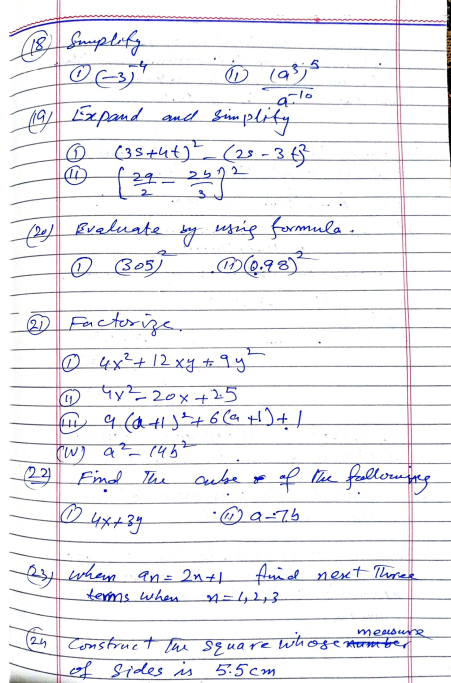 (18) Simplify
(i) (-3)⁻⁴ (ii) (a³)⁵ / a⁻¹⁰
(19) Expand and simplify
(i) (3s+4t)² - (2s-3t)²
(ii) [2a/2 - 2b/3]²
(20) Evaluate by using formula.
(i) (305)² (ii) (0.98)²
(21) Factorize.
(i) 4x² + 12xy + 9y²
(ii) 4x² - 20x + 25
(iii) 9(a+1)² + 6(a+1) + 1
(iv) a² - 14b²
(22) Find The cube of the following
(i) 4x+3y (ii) a-7b
(23) when an = 2n+1 find next Three
terms when n=1,2,3
(24) Construct The square whose measure
of sides is 5.5cm